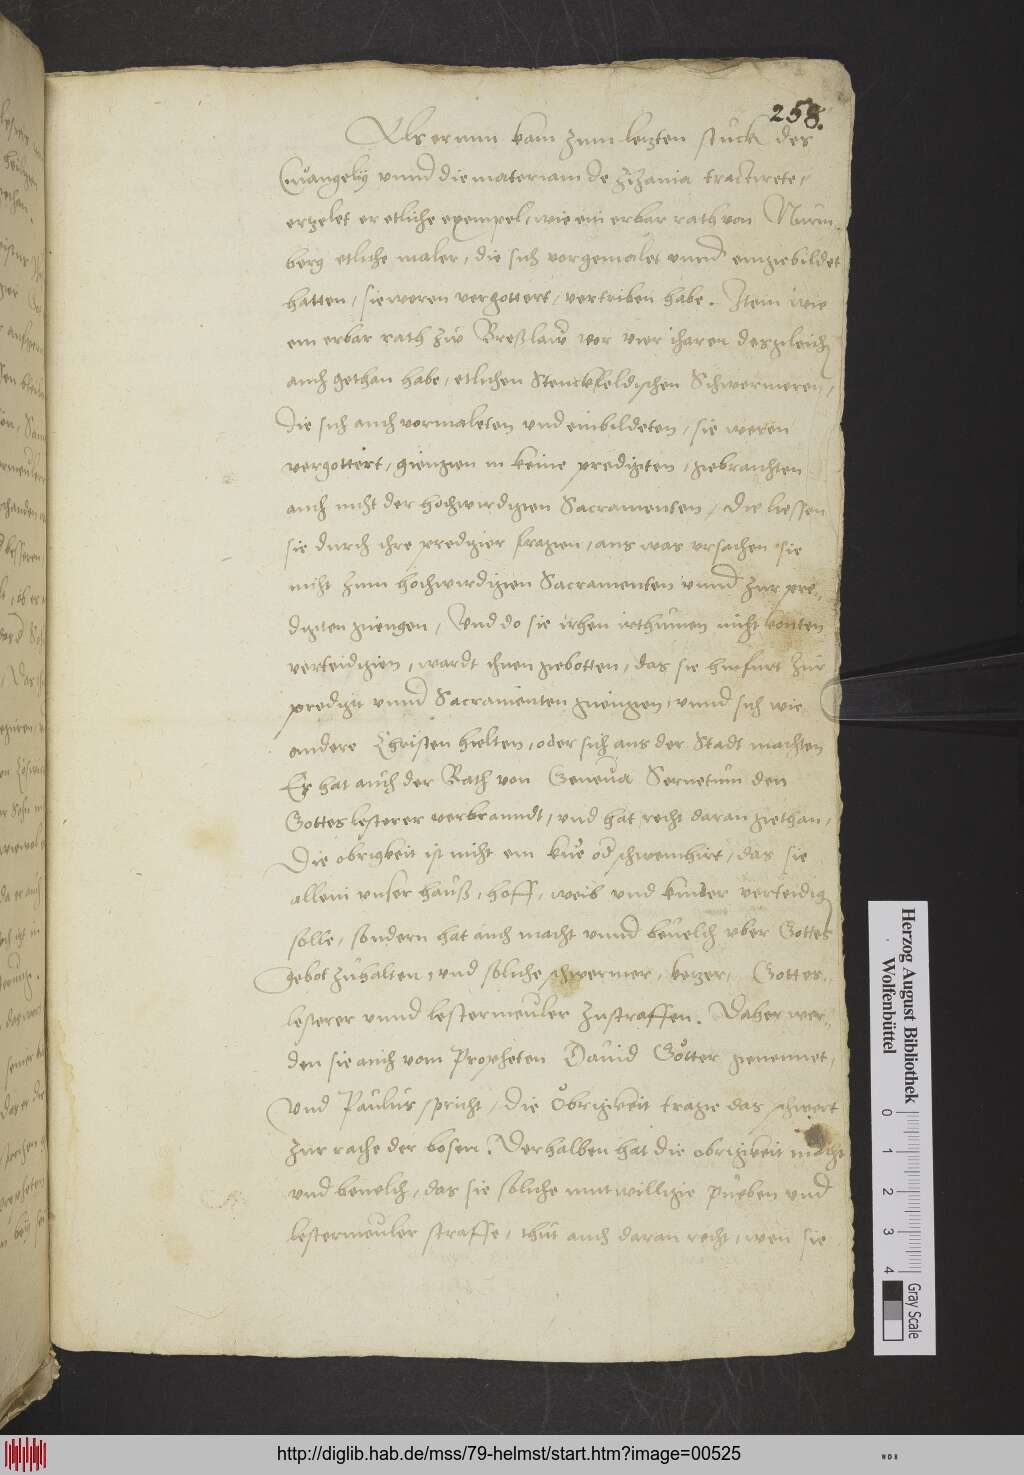 258.
Als er nun kam zum letzten stück des
Euangelij vnnd die materiam de Zizania tractirete,
erzelet er etliche exempel, wie ein erbar rath von Nurm-
berg etliche maler, die sich vorgemalet vnnd eingebildet
hatten, sie weren vergottert, vertriben habe. Item wie
ein erbar rath zu Breßlaw vor vier iharen desgleich
auch gethan habe, etlichen Stenckfeldischen Schwermeren,
die sich auch vormaleten vnd einbildeten, sie weren
vergottert, giengen in keine predigten, gebrauchten
auch nicht der hochwirdigen Sacramenten, die liessen
sie durch ihre prediger fragen, aus was vrsachen sie
nicht zum hochwirdigen Sacramenten vnnd zur pre-
digten giengen, Vnd do sie irhen irthumen nicht konten
verteidigen, wardt ihnen gebotten, das sie hinfurt zur
predigt vnnd Sacramenten giengen, vnnd sich wie
andere Christen hielten, oder sich aus der Stadt machten
Es hat auch der Rath von Geneua Seruetum den
Gottes lesterer verbranndt, vnd hat recht daran gethan,
Die obrigkeit ist nicht ein kue od schweinhirt, das sie
allein vnser hauß, hoff, weib vnd kinder verteidig
solle, sondern hat auch macht vnnd beuelch vber Gottes
gebot zuhalten, vnd solche schwermer, ketzer, Gottes-
lesterer vnnd lestermeuler zustraffen. Daher wer-
den sie auch vom Propheten Dauid Götter genennet,
Vnd Paulus spricht, die Obrigkeit trage das schwert
zur rache der bosen. Derhalben hat die obrigkeit macht
vnd beuelch, das sie solche mutwillige bueben vnd
lestermeuler straffe, thut auch daran recht, wen sie
Herzog August Bibliothek
Wolfenbüttel
0 1 2 3 4
Gray Scale
http://diglib.hab.de/mss/79-helmst/start.htm?image=00525
WDB